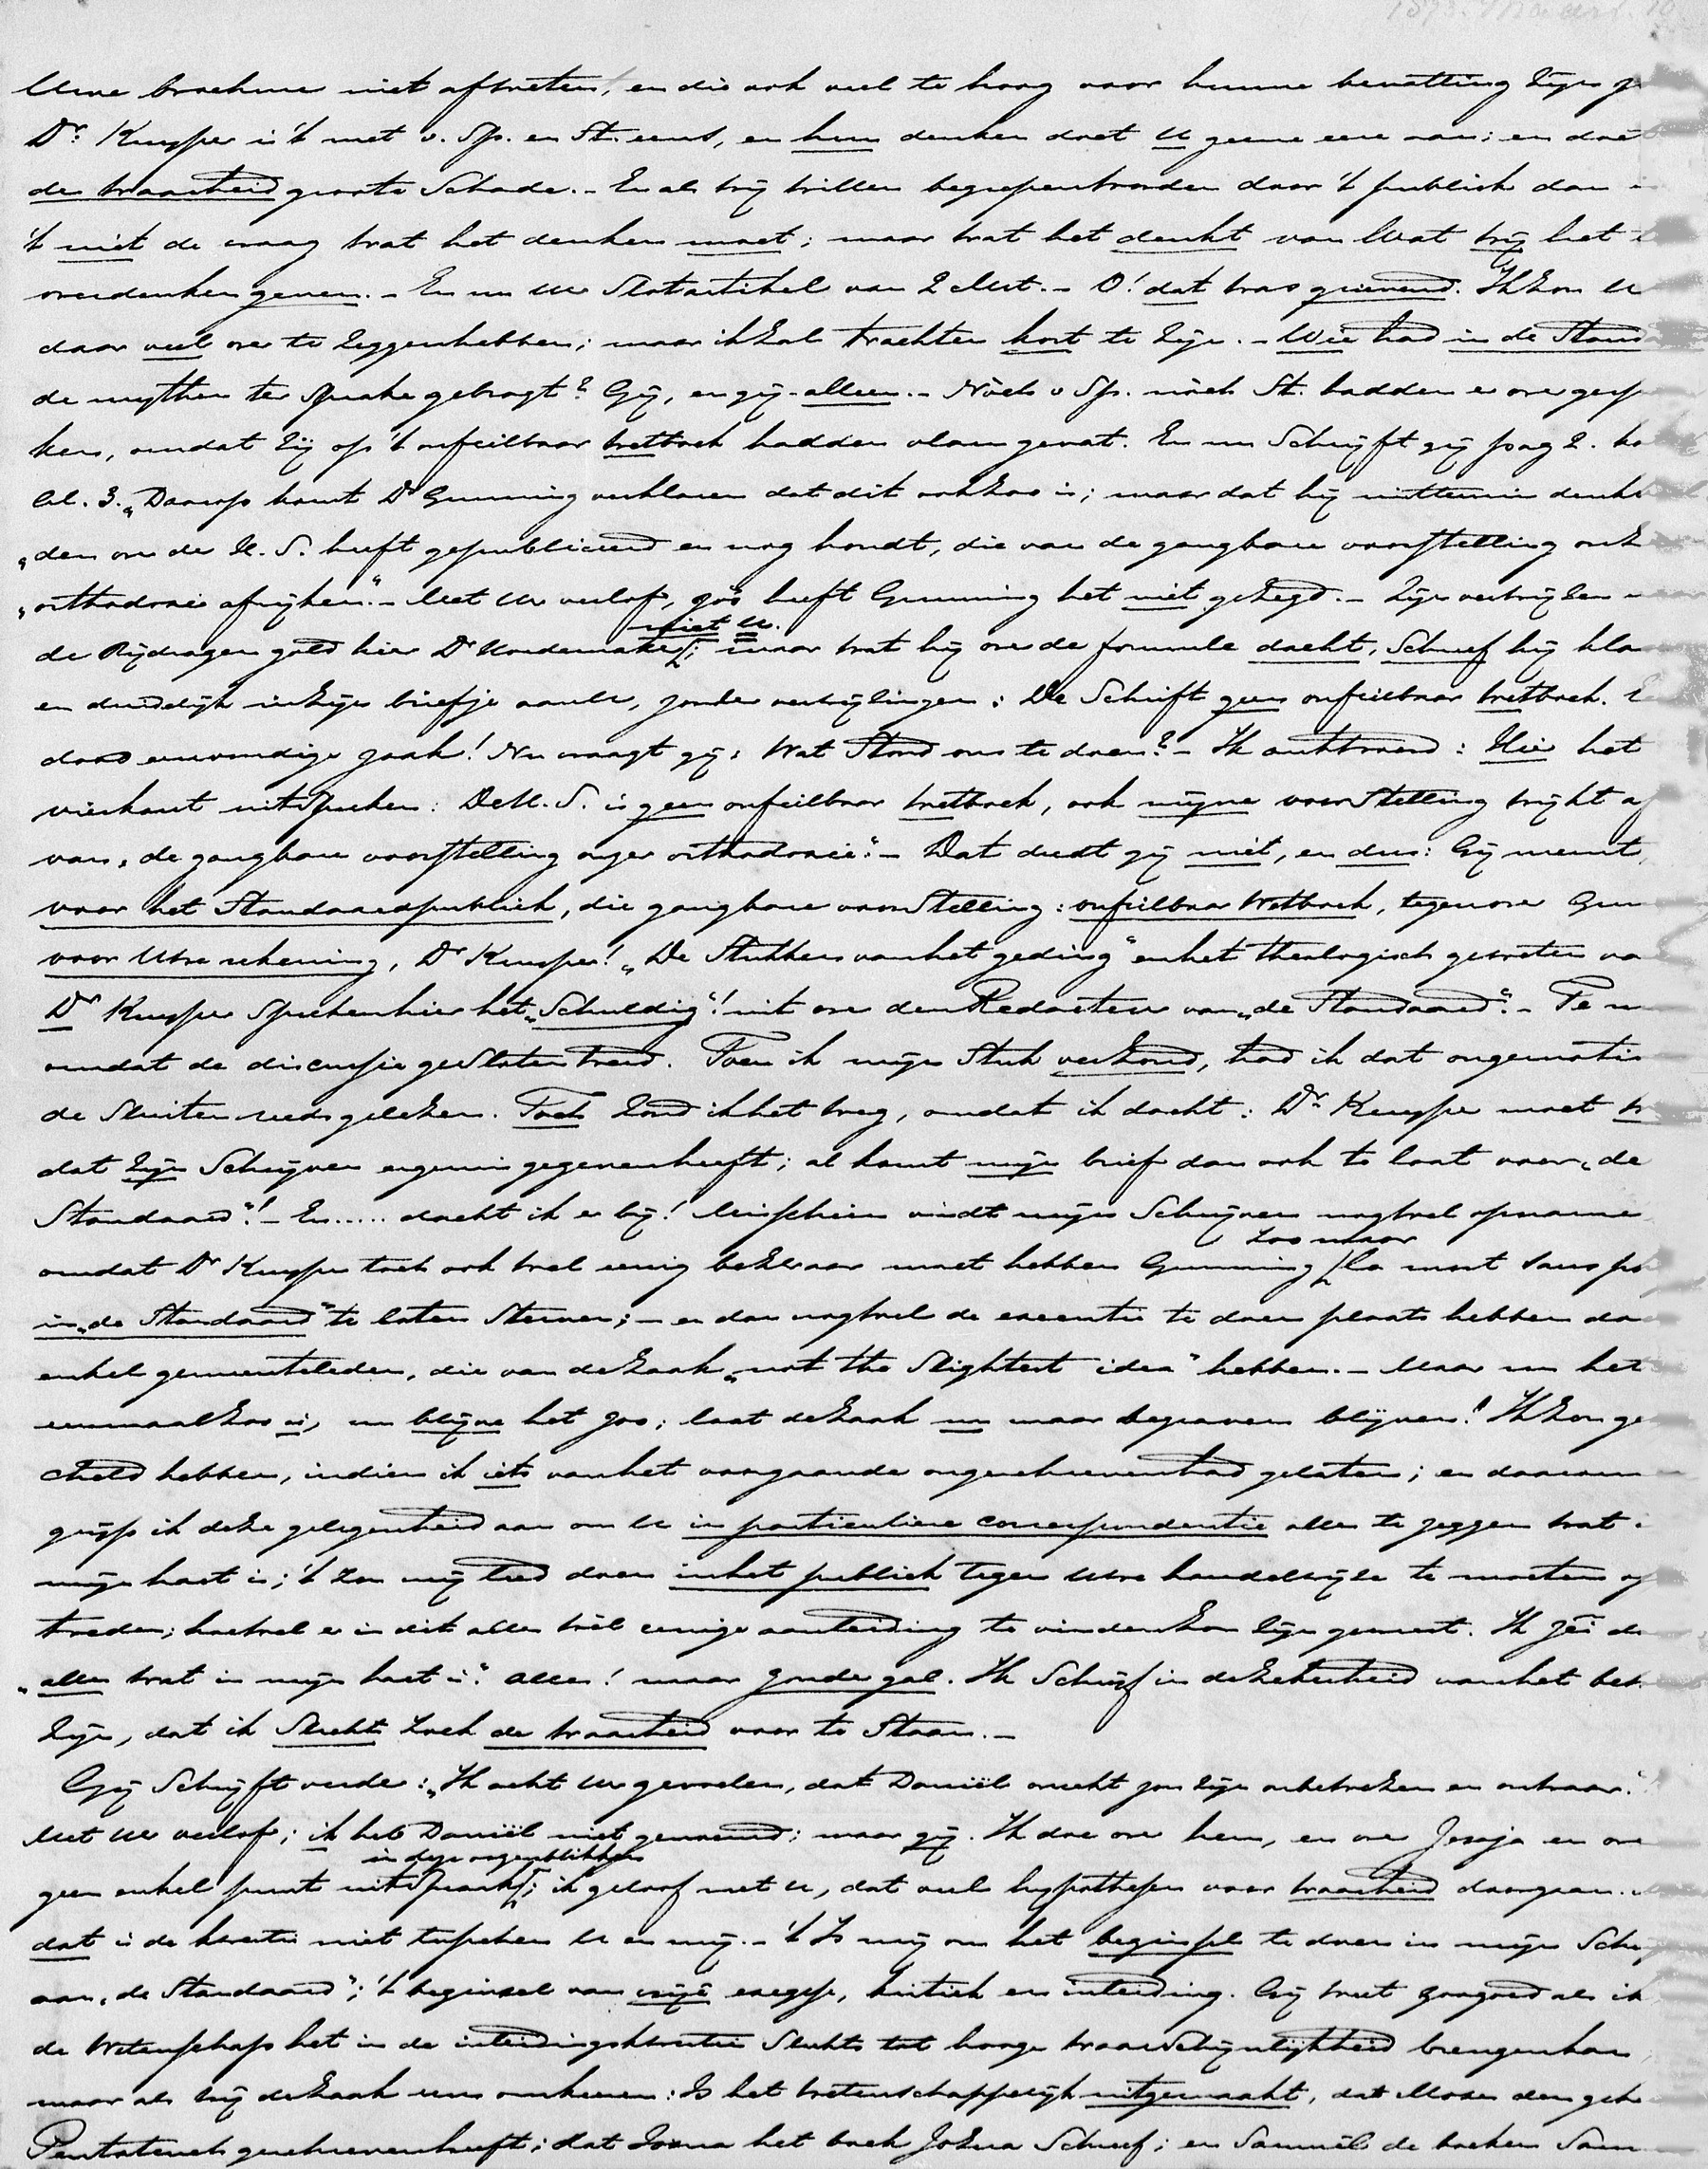 1873. Maart. 10
Uwe broekene niet aftreten, en die ook veel te hoog voor hunne bevatting zijn
Dr. Kuyper is 't met v. Sp. en St. eens, en hun denken doet U geene eere aan; en doe
de waarheid groote Schade. – En als wij willen begrepen worden door 't publiek dan i
't niet de vraag wat het denken moet; maar wat het denkt van Wat wij het
overdenken geven. – En nu Uw Slotartikel van 2 Mrt. – O! dat was grievend. Ik zou U
daar veel over te zeggen hebben; maar ik zal trachten kort te zijn. – Wie had in de Stand
de mythen ter sprake gebragt? Gij, en gij alleen. – Nòch v Sp. nòch St. hadden er over gesp
ken, omdat zij op 't onfeilbaar wetboek hadden vlam gevat. En nu Schrijft gij pag 2. ko
al. 3. „Daarop komt Dr Gunning verklaren dat dit ook zoo is; maar dat hij niettemin denk
„den over de H. S. heeft gepubliceerd en nog houdt, die van de gangbare voorstelling onz
„orthodoxie afwijken." – Met Uw verlof, zóó heeft Gunning het niet gezegd. – Zijn verwijzen n
niet U.
de Bijdragen gold hier Dr Hoedemaker; maar wat hij over de formule dacht, Schreef hij kla
en duidelijk in zijn briefje aan U, zonder verwijzingen: De Schrift geen onfeilbaar wetboek. E
dood eenvoudige zaak! Nu vraagt gij: Wat Stond ons te doen? – Ik antwoord: Hier het
vierkant uit Spreken: De H. S. is geen onfeilbaar wetboek, ook mijne voorStelling wijkt af
van „de gangbare voorstelling onzer orthodoxie". – Dat deedt gij niet, en dus: Gij neemt,
voor het Standaardpubliek, die gangbare voorStelling: onfeilbaar Wetboek, tegenover Gun
voor Uwe rekening, Dr Kuyper! „De Stukken van het geding" en het theologisch geweten va
Dr Kuyper Spreken hier het „Schuldig"! uit over den Redacteur van „de Standaard". – Te
omdat de discussie geSloten werd. Toen ik mijn Stuk verzond, had ik dat ongemotiv
de Sluiten reeds gelezen. Toch zond ik het weg, omdat ik dacht: Dr. Kuyper moet w
dat zijn Schrijven ergernis gegeven heeft; al komt mijn brief dan ook te laat voor „de
Standaard"! – En..... dacht ik er bij! Misschien vindt mijn Schrijven nog wel opname
Zoo maar
omdat Dr Kuyper toch ook wel eenig bezwaar moet hebben Gunning la mort sans ph
in „de Standaard" te laten Sterven; – en dan nog wel de executie te doen plaats hebben do
enkel gemeenteleden, die van de zaak „not the Slightest idea" hebben. – Maar nu het
eenmaal zoo is, nu blijve het zoo; laat de zaak nu maar begraven blijven! Ik zou ge
cheld hebben, indien ik iets van het voorgaande ongeschreven had gelaten; en daarom
grijp ik deze gelegenheid aan om U in particuliere correspondentie alles te zeggen wat i
mijn hart is; 't zou mij leed doen in het publiek tegen Uwe handelwijze te moeten op
treden; hoewel er in dit alles wèl eenige aanleiding te vinden zou zijn geweest. Ik zei d
„alles wat in mijn hart is". Alles! maar zonder gal. Ik Schrijf in de zekerheid van het bet
zijn, dat ik Slechts zoek de waarheid voor te Staan. –
Gij Schrijft verder: „Ik acht Uw gevoelen, dat Daniël onecht zou zijn onbewezen en onwaar."
Met Uw verlof; ik heb Daniël niet genoemd; maar gij. Ik doe over hem, en over Jesaja en ove
in deze oogenblikken
geen enkel punt uitSpraak; ik geloof met U, dat veel hypothesen voor waarheid doorgaan.
dat is de kwestie niet tusschen U en mij. – 't Is mij om het beginsel te doen in mijn Schrij
aan „de Standaard"; 't beginsel van vrije exegese, kritiek en inleiding. Gij weet zoo goed als ik
de Wetenschap het in de inleidingskwestie Slechts tot hooge waarSchijnlijkheid brengen kan
maar als wij de zaak eens omkeeren: Is het wetenschappelijk uitgemaakt, dat Mozes den gehe
Pentateuch geschreven heeft; dat Jozua het boek Jozua Schreef; en Samuël de boeken Sam